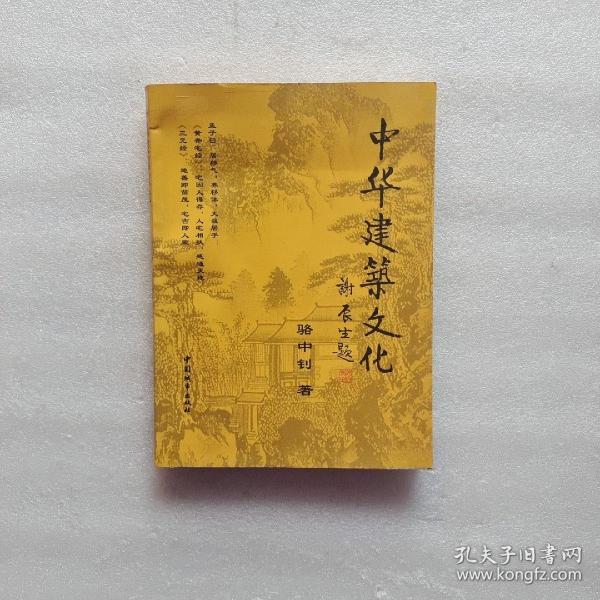 中华建築文化
謝辰生题
骆中钊 著
孟子曰：居移气，养移体，大哉居乎
《黄帝宅经》：宅因人得存，人宅相扶，感通天地
《三元经》：地善即苗茂，宅吉即人荣
中国城市出版社
孔夫子旧书网
www.kongfz.com